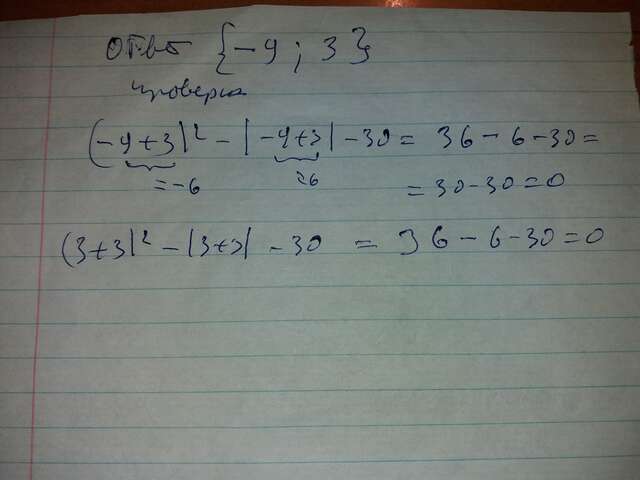 Ответ {-9; 3}
проверка
(-9+3)² - |-9+3| -30 = 36 - 6 - 30 =
= -6 26 = 30-30=0
(3+3)² - |3+3| - 30 = 36 - 6 - 30 = 0